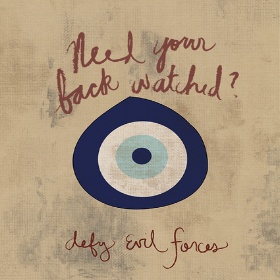 Need your
back watched?
defy Evil forces